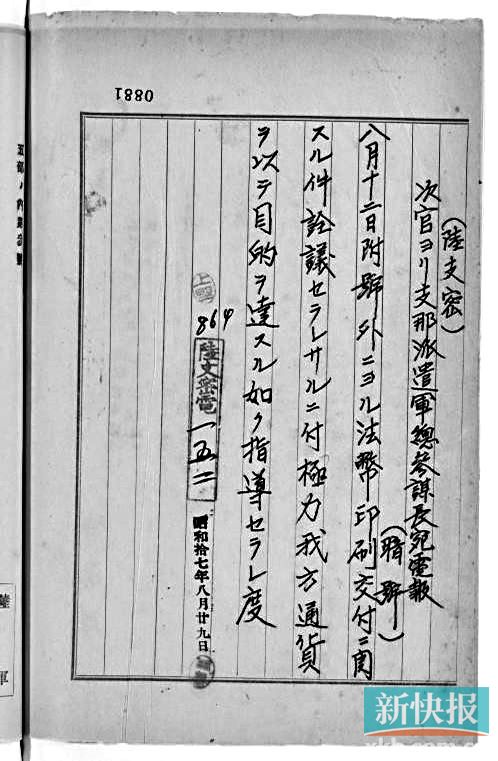 0881
(陸支密)
次官ヨリ支那派遣軍總参謀長宛電報
(暗號)
八月十二日附號外ニヨル法幣印刷交付ニ関
スル件詮議セラレサルニ付極力我方通貨
ヲ以テ目的ヲ達スル如ク指導セラレ度
864
陸支密電一五二
昭和拾七年八月廿九日
陸
軍
新快报